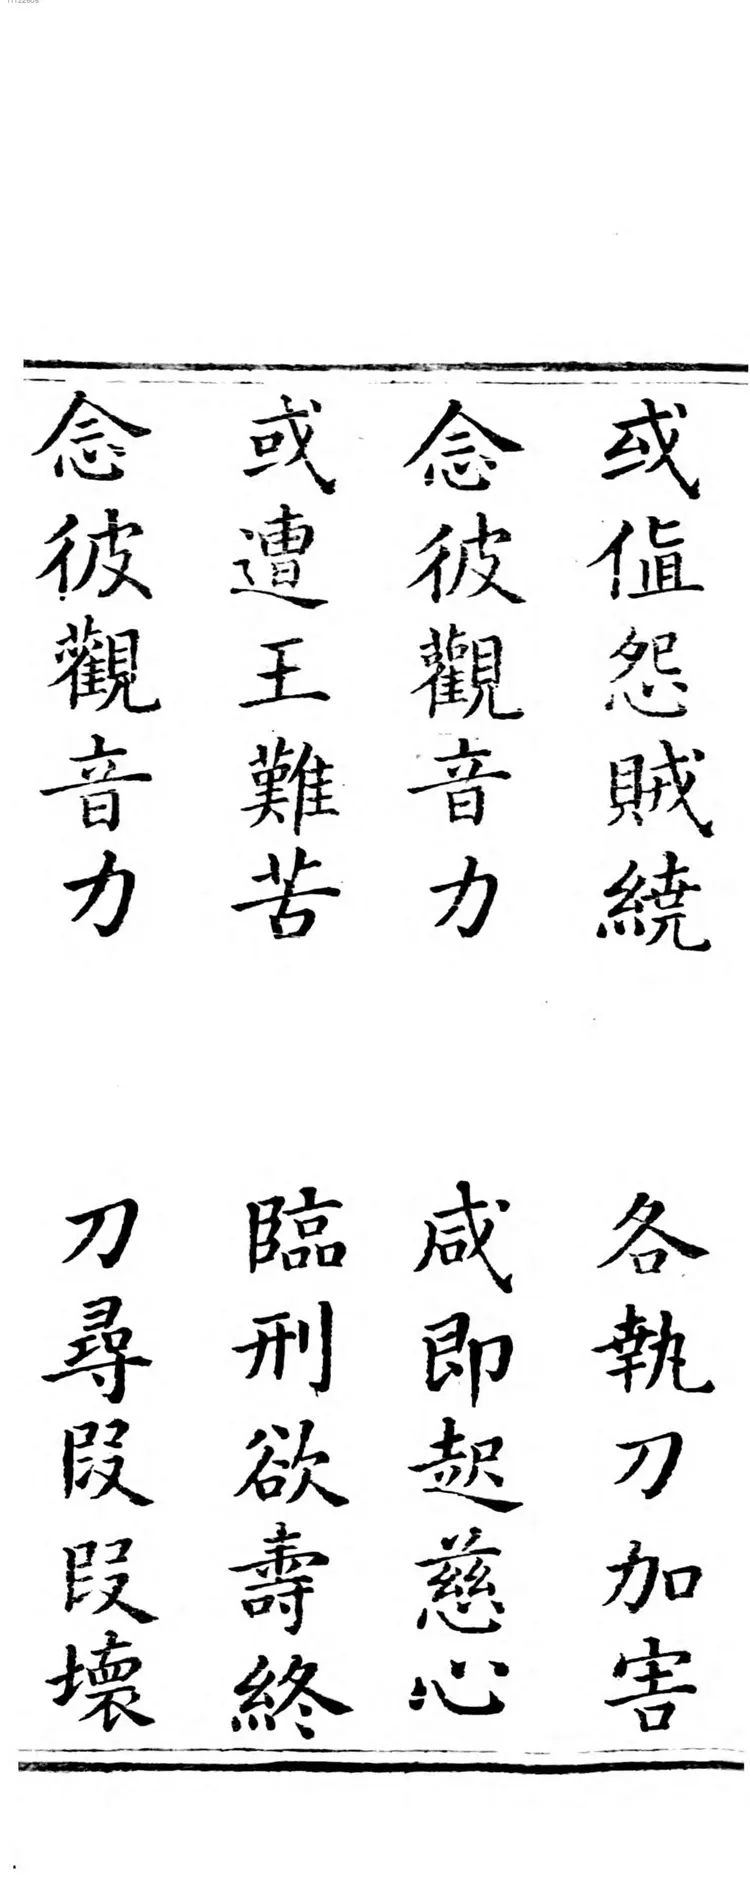 或值怨賊繞　各執刀加害
念彼觀音力　咸即起慈心
或遭王難苦　臨刑欲壽終
念彼觀音力　刀尋叚叚壞